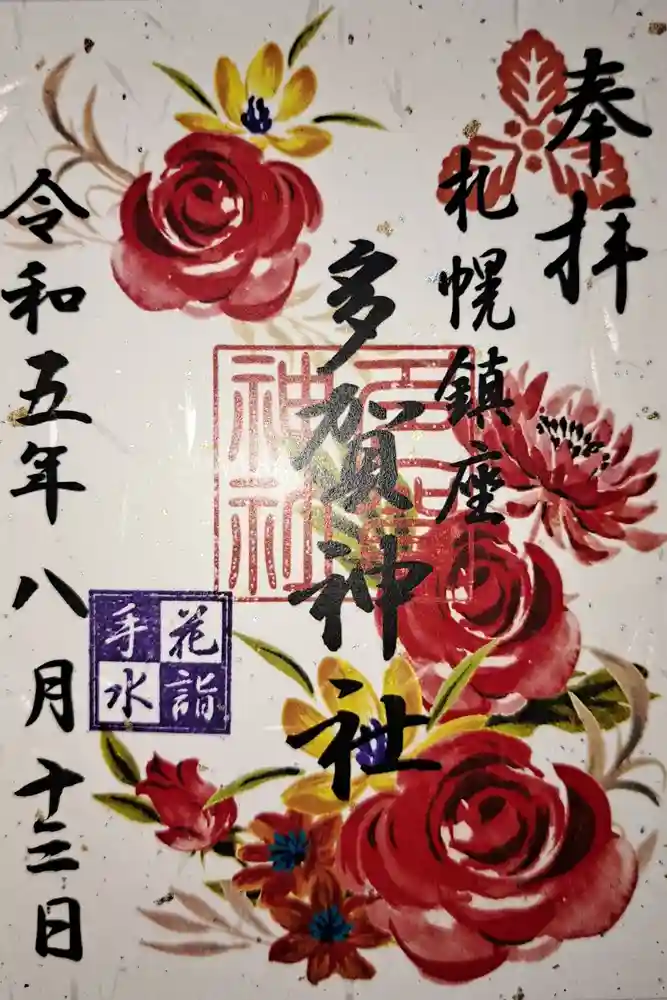 奉拝
札幌鎮座
多賀神社
多賀
神社
花詣
手水
令和五年八月十三日